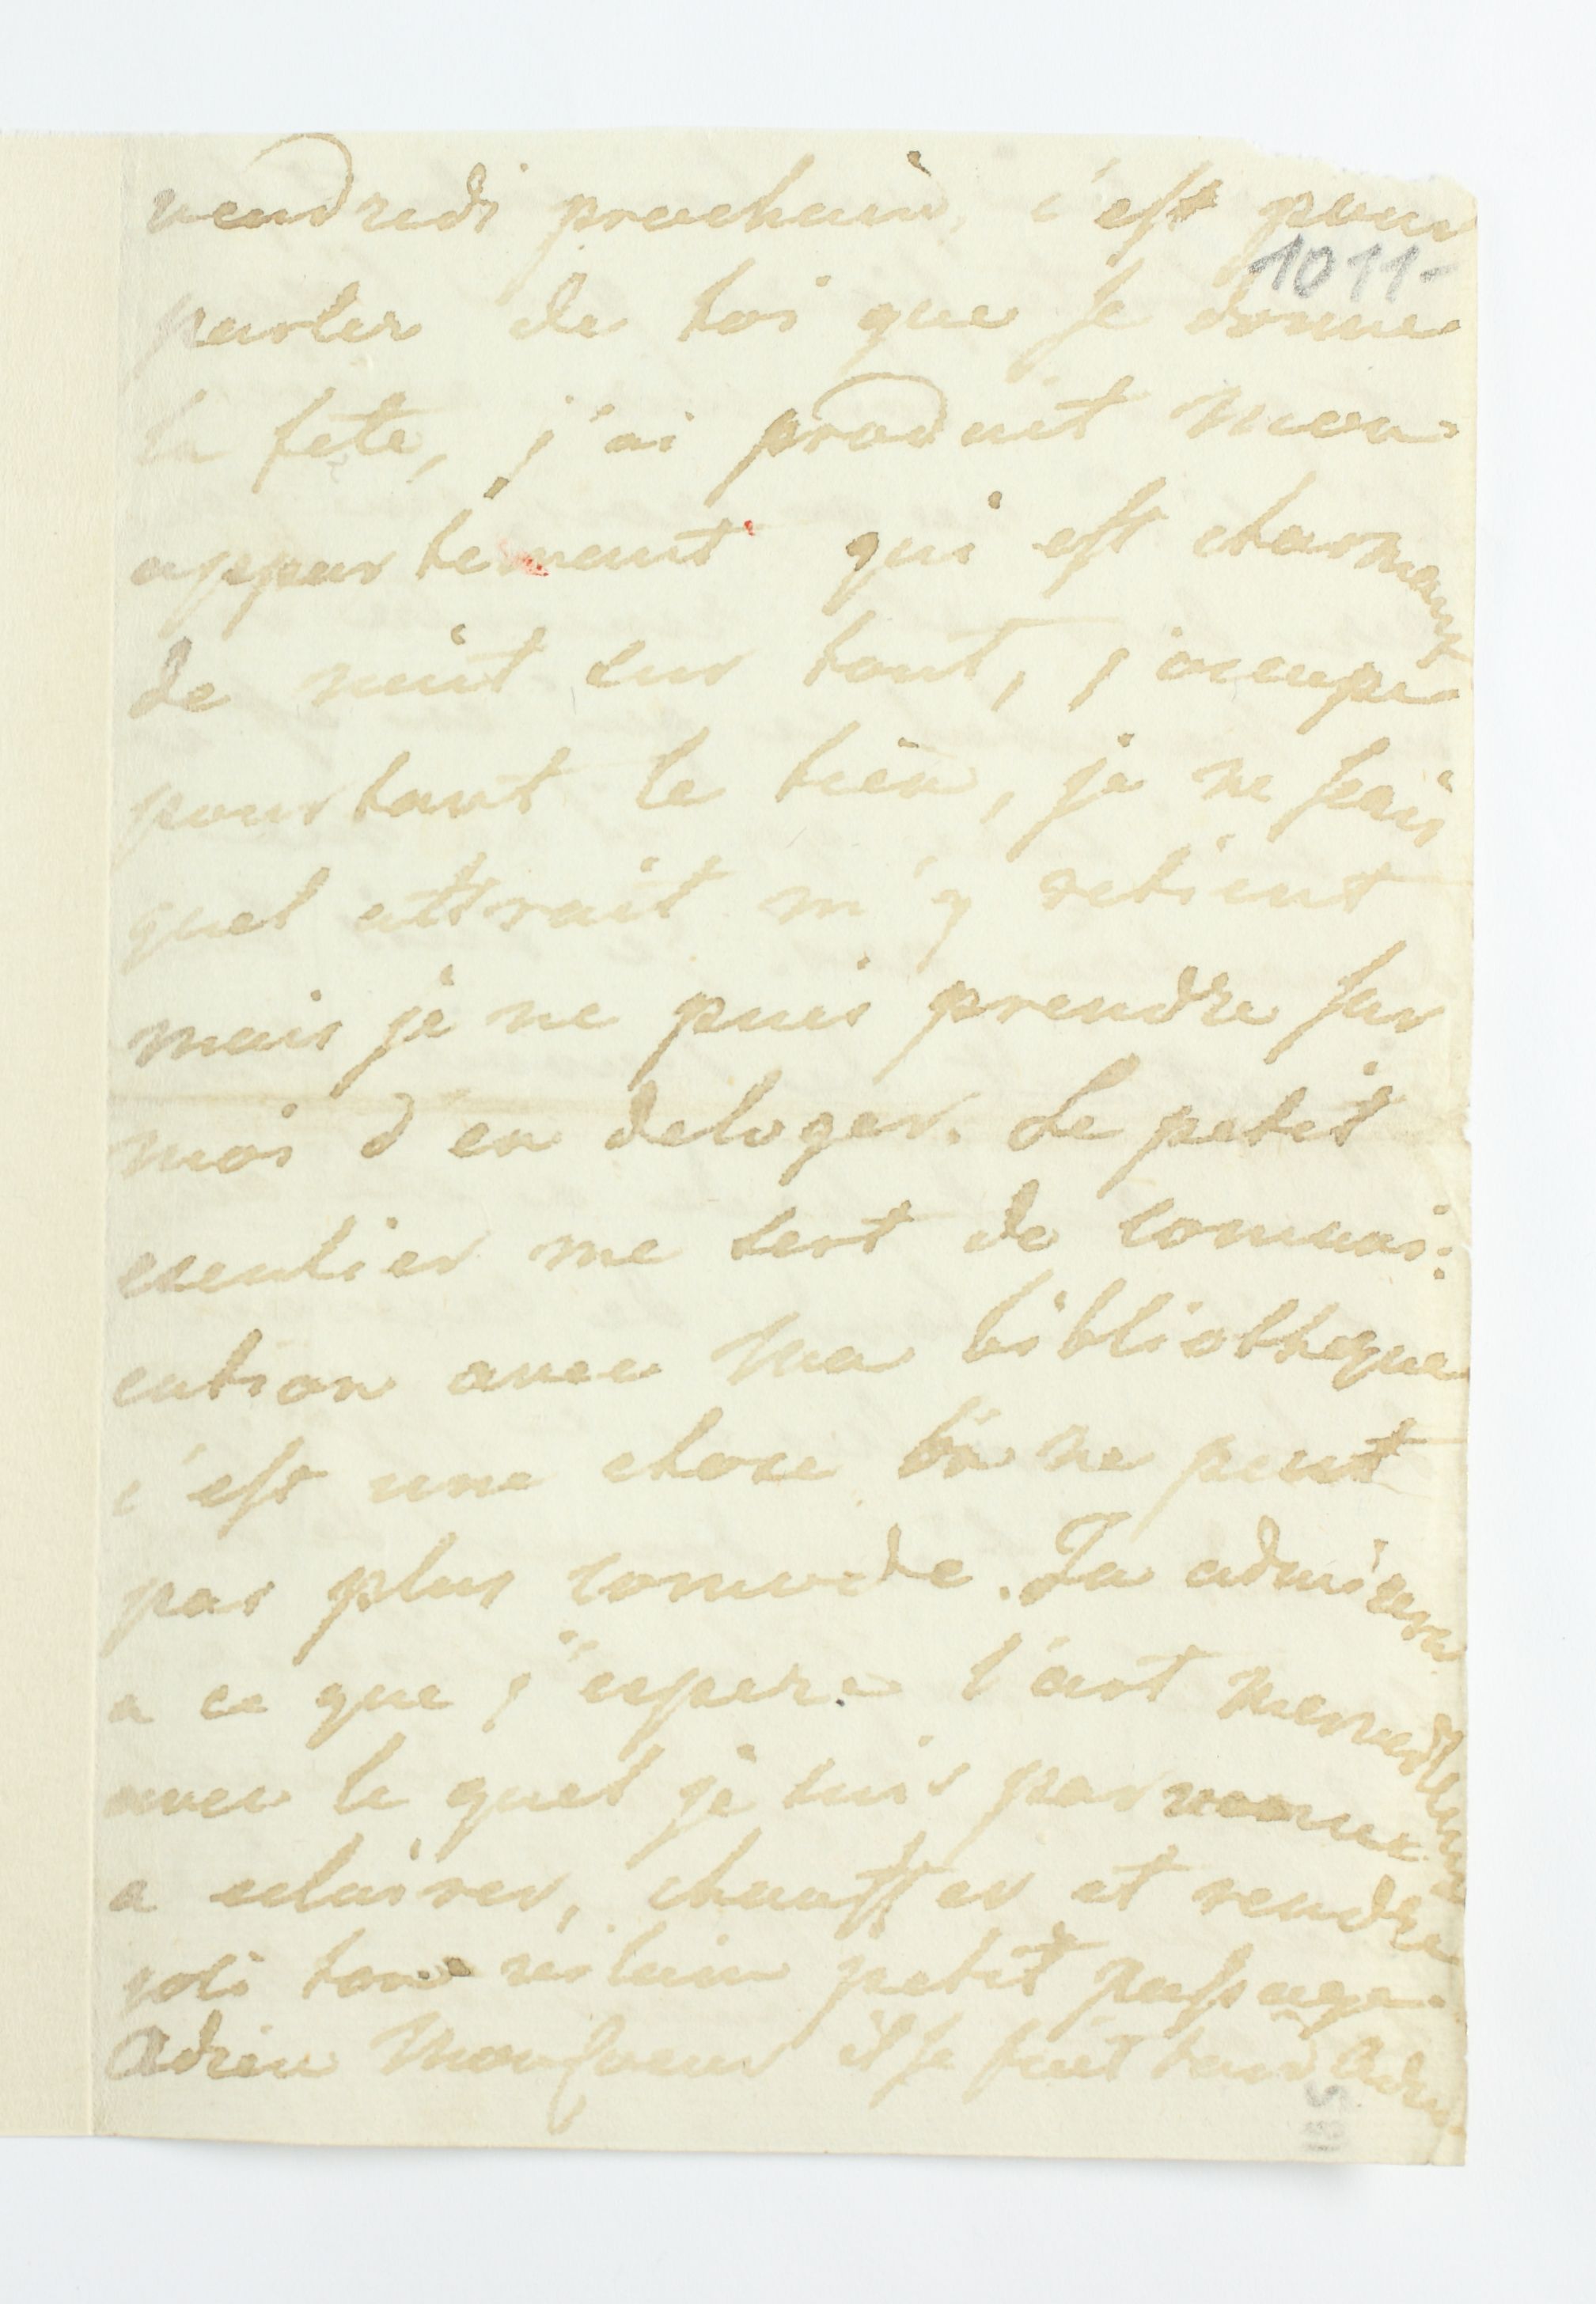 vendredi prochain, c'est pour
1011-
parler de toi que je donne
la fete, j'ai produit mon
appartement qui est charmant
de nuit sur tout, j'occupe
pourtant le tien, je ne sais
quel attrait m'y retient
mais je ne puis prendre sur
moi d'en deloger. Le petit
escalier me sert de comuni:
cation avec ma bibliotheque
c'est une chose on ne peut
par plus comode. Tu admirera
a ce que j'espere l'art merveilleux
avec le quel je suis parvenue
a eclairer, chauffer et rendre
joli ton vilain petit passage.
Adieu mon coeur il se fait tard Adieu